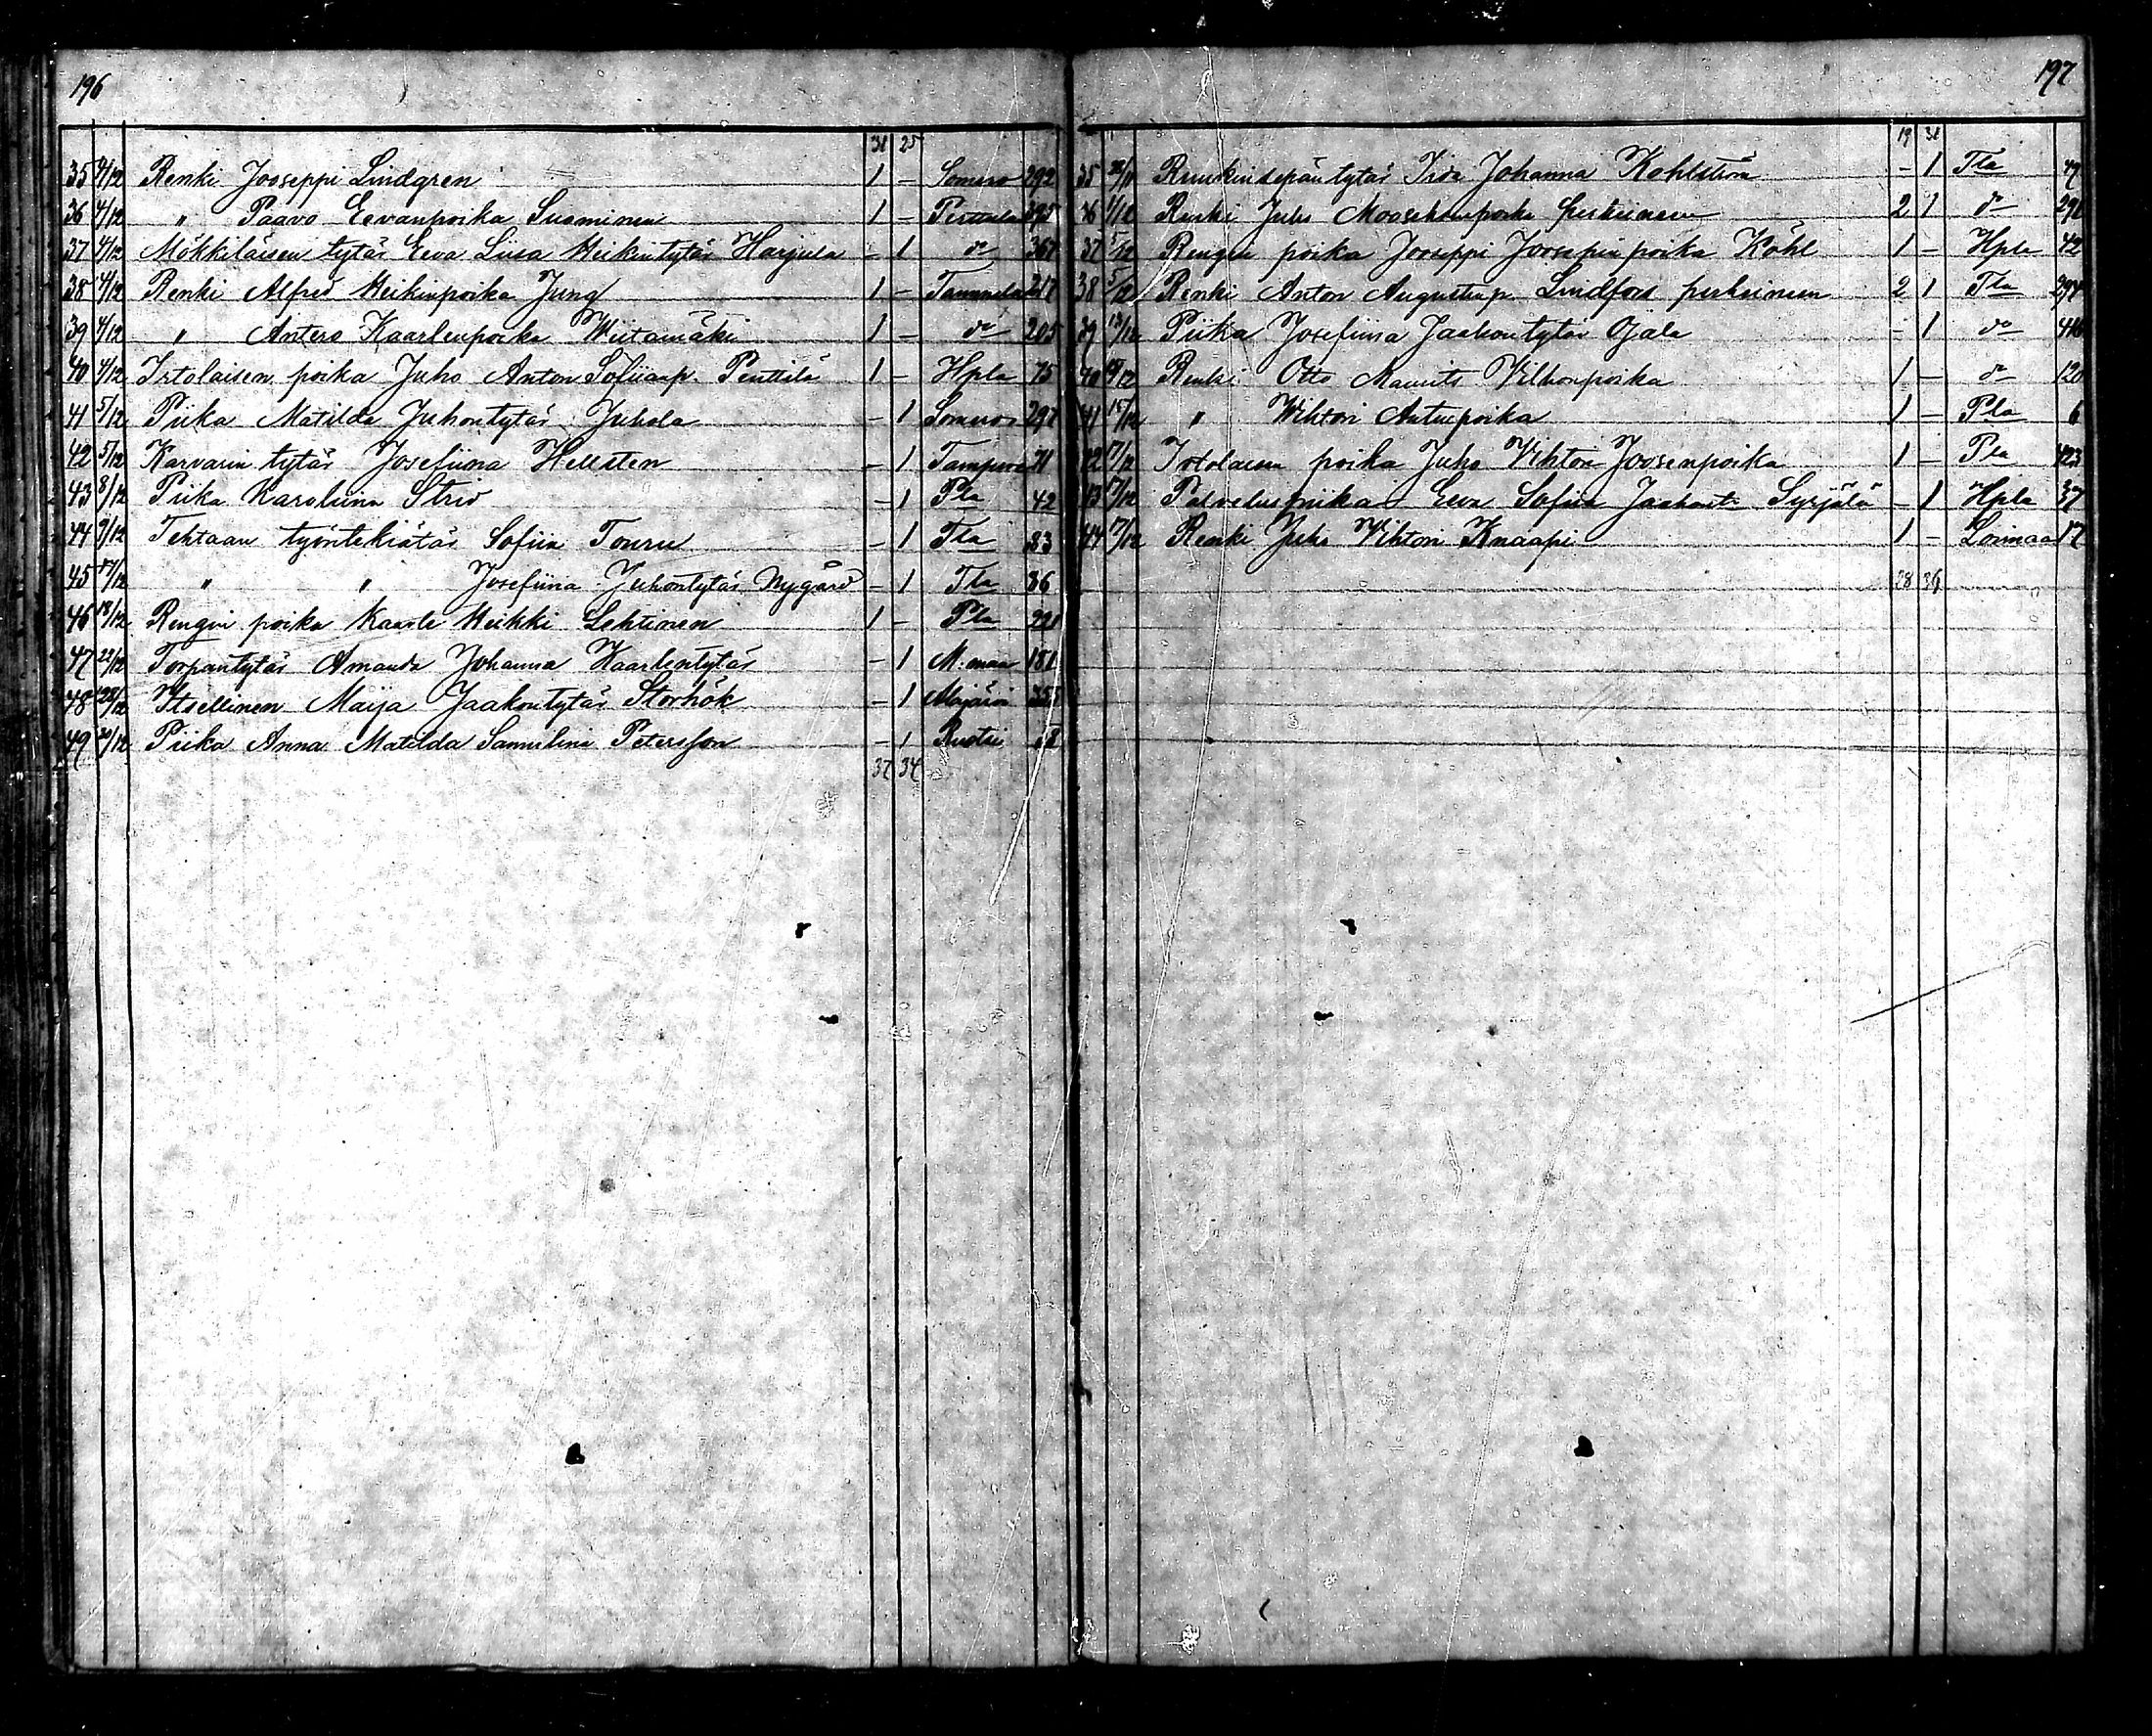 196
31 25
35 4/12 Renki Jooseppi Lindgren 1 - Somero 292
36 4/12 " Paavo Eevanpoika Suominen 1 - Perttula 395
37 4/12 Mökkiläisen tytär Eeva Liisa Heikintytär Harjula - 1 do 367
38 4/12 Renki Alfred Heikinpoika Jung 1 - Tammela 217
39 4/12 " Antero Kaarlenpoika Wiitamäki 1 - do 205
40 4/12 Irtolaisen poika Juho Anton Sofiianp. Penttilä 1 - Hpla 75
41 5/12 Piika Matilda Juhontytär Juhola - 1 Somero 297
42 5/12 Karvarin tytär Josefiina Hellsten - 1 Tampere 71
43 8/12 Piika Karoliina Strid - 1 Pla 42
44 9/12 Tehtaan työntekiätär Sofiia Touru - 1 Tla 83
45 17/12 " " Josefiina Juhontytär Nygård - 1 Tla 36
46 18/12 Rengin poika Kaarle Heikki Lehtinen 1 - Pla 221
47 22/12 Torpantytär Amanda Johanna Kaarlentytär - 1 M.maa 181
48 28/12 Itsellinen Maija Jaakontytär Storhök - 1 Majärvi
49 29/12 Piika Anna Matilda Samulini Petersson - 1 Ruotsi
37 34
197
19 31
35 28/11 Ruukinsepäntytär Iida Johanna Kohlström - 1 Tla 49
36 1/12 Renki Juho perheineen 2 1 do
37 5/12 Rengin poika Jooseppi Joosepinpoika Köhl 1 - Hpla 42
38 5/12 Renki Anton Augustinp. Lindfors perheineen 2 1 Tla 294
39 13/12 Piika Josefiina Jaakontytär Ojala - 1 do
40 15/12 Renki Otto Maurits Vilhonpoika 1 - do 120
41 15/12 " Wihtori Antinpoika 1 - Pla 6
42 17/12 Irtolaisen poika Juho Vihtori Joosenpoika 1 - Pla 423
43 17/12 Palveluspiika Eeva Sofiia Jaakont. Syrjälä - 1 Hpla 37
44 17/12 Renki Juho Vihtori Knaapi 1 - Loimaa 17
28 36